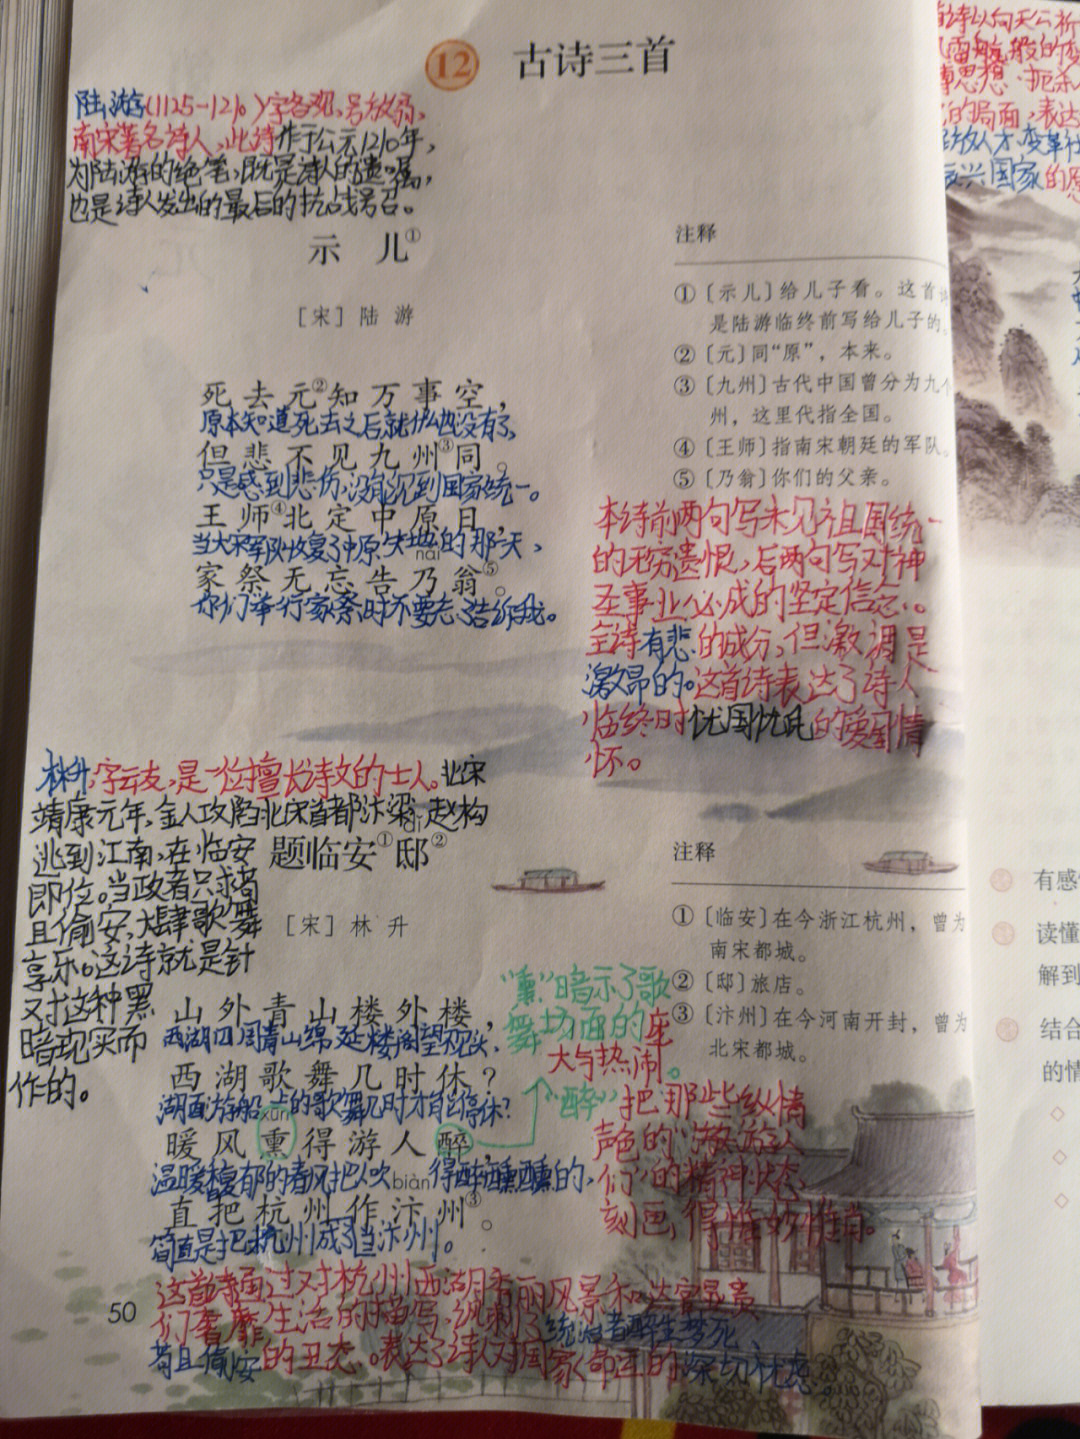 12 古诗三首
陆游(1125-1210)字务观,号放翁,
南宋著名诗人,此诗作于公元1210年,
为陆游的绝笔,既是诗人的遗嘱,
也是诗人发出的最后的抗战号召。
示儿①
[宋]陆 游
死去元②知万事空,
原本知道死去之后就什么也没有了,
但悲不见九州③同。
只是感到悲伤,没能见到国家统一。
王师④北定中原日,
当大宋军队收复了中原失地的那一天,
nǎi
家祭无忘告乃翁⑤。
你们举行家祭时不要忘了告诉我。
注释
①〔示儿〕给儿子看。这首
是陆游临终前写给儿子的
②〔元〕同“原”,本来。
③〔九州〕古代中国曾分为九
州,这里代指全国。
④〔王师〕指南宋朝廷的军队
⑤〔乃翁〕你们的父亲。
本诗前两句写未见祖国统一
的无穷遗恨,后两句写对神
圣事业必成的坚定信念。
全诗有悲的成分,但激调是
激昂的。这首诗表达了诗人
临终时忧国忧民的爱国情
怀。
林升,字云友,是一位擅长诗文的士人。北宋
靖康元年,金人攻陷北宋首都汴梁,赵构
逃到江南,在临安
即位。当政者只求苟
且偷安,大肆歌舞
享乐。这诗就是针
对这种黑
暗现实而
作的。
dǐ
题临安①邸②
[宋]林 升
山外青山楼外楼,
西湖四周青山绵延楼阁望不见头,
西湖歌舞几时休?
湖面游船上的歌舞几时才能停休?
xūn
暖风熏得游人醉,
温暖馥郁的春风把人吹得醉醺醺的,
biàn
直把杭州作汴州③。
简直是把杭州当成了汴州。
注释
①〔临安〕在今浙江杭州,曾为
南宋都城。
②〔邸〕旅店。
③〔汴州〕在今河南开封,曾为
北宋都城。
“熏”暗示了歌
舞场面的庞
大与热闹。
“醉”把那些纵情
声色的游人
们的精神状态
刻画得惟妙惟肖。
这首诗通过对杭州西湖美丽风景和达官显贵
们奢靡生活的描写,讽刺了统治者醉生梦死、
苟且偷安的丑态。表达了诗人对国家命运的深切忧虑。
50
首诗以向天公祈
思想,扼杀
的局面,表达
放人才,变革社
振兴国家的愿
有感情
读懂
解到
结合
的情